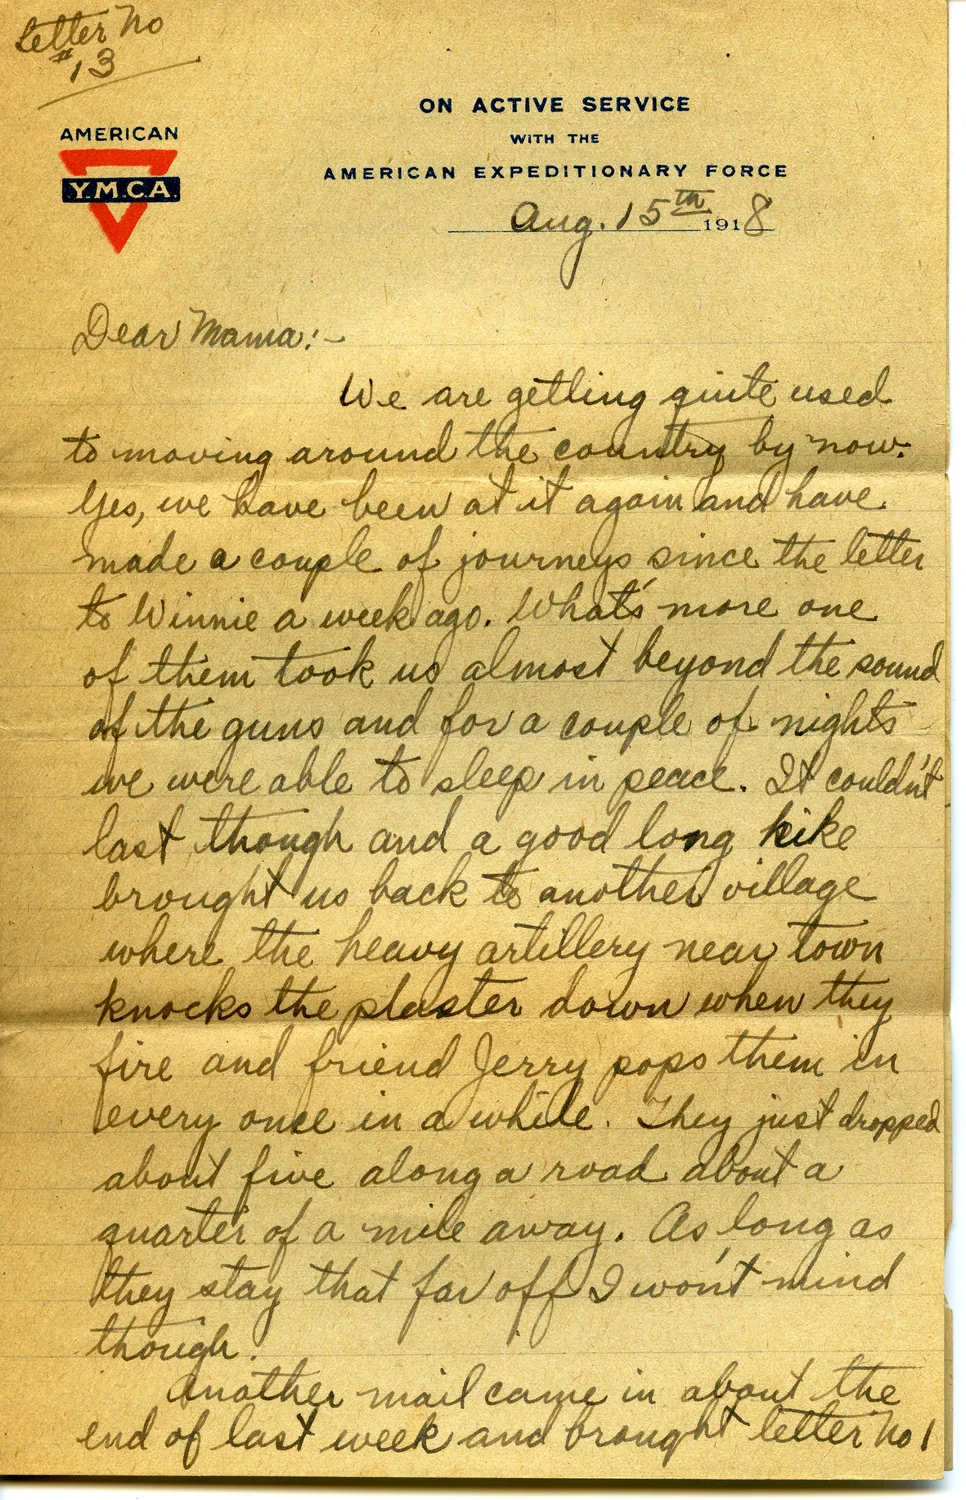 Letter No
# 13
ON ACTIVE SERVICE
WITH THE
AMERICAN EXPEDITIONARY FORCE
AMERICAN
Y.M.C.A.
Aug. 15th 1918
Dear Mama:-
We are getting quite used
to moving around the country by now.
Yes, we have been at it again and have
made a couple of journeys since the letter
to Winnie a week ago. What's more one
of them took us almost beyond the sound
of the guns and for a couple of nights
we were able to sleep in peace. It couldn't
last though and a good long hike
brought us back to another village
where the heavy artillery near town
knocks the plaster down when they
fire and friend Jerry pops them in
every once in a while. They just dropped
about five along a road about a
quarter of a mile away. As long as
they stay that far off I won't mind
though.
Another mail came in about the
end of last week and brought letter No 1